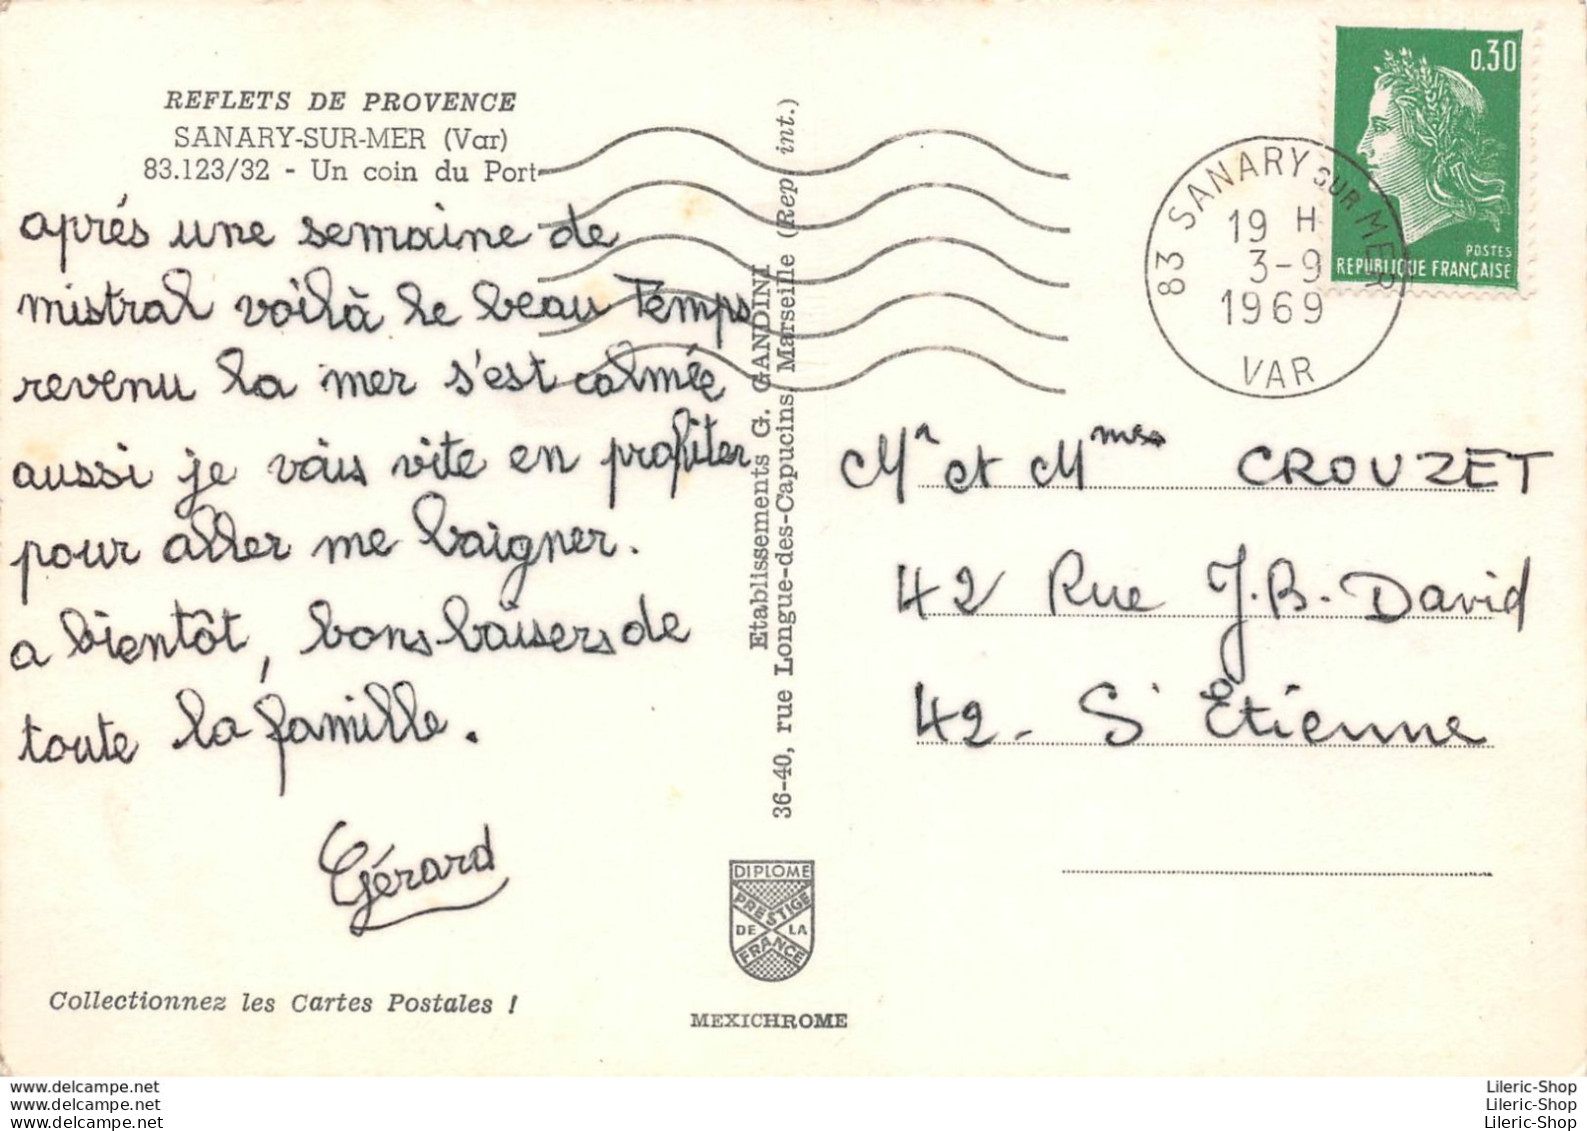 REFLETS DE PROVENCE
SANARY-SUR-MER (Var)
83.123/32 - Un coin du Port
aprés une semaine de
mistral voilà le beau temps
revenu la mer s'est calmée
aussi je vais vite en profiter
pour aller me baigner.
a bientôt, bons baisers de
toute la famille.
Gérard
Collectionnez les Cartes Postales !
Etablissements G. GANDINI
36-40, rue Longue-des-Capucins, Marseille (Rep int.)
DIPLOME
PRESTIGE
DE LA
FRANCE
MEXICHROME
0,30
POSTES
REPUBLIQUE FRANÇAISE
83 SANARY SUR MER
19 H
3-9
1969
VAR
Mr et Mmes CROUZET
42 Rue J.B. David
42 - St Étienne
www.delcampe.net
www.delcampe.net
www.delcampe.net
Lileric-Shop
Lileric-Shop
Lileric-Shop